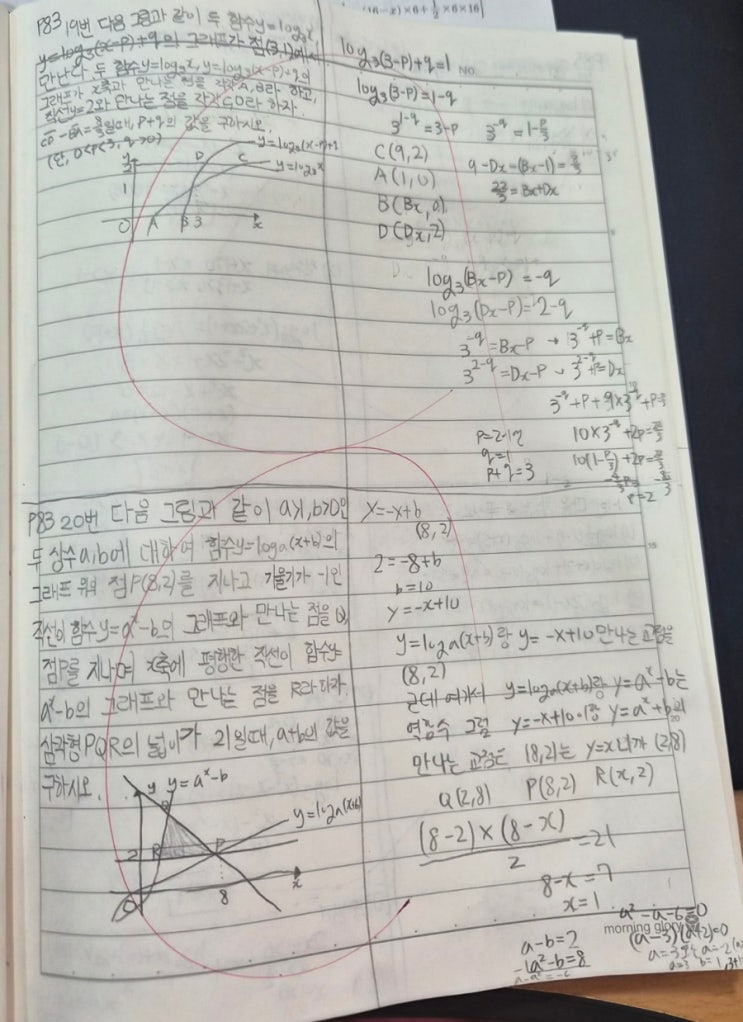 P83 19번 다음 그림과 같이 두 함수 y=log₃x,
y=log₃(x-p)+q의 그래프가 점(3,1)에서
만난다. 두 함수 y=log₃x, y=log₃(x-p)+q의
그래프가 x축과 만나는 점을 각각 A, B라 하고,
직선 y=2와 만나는 점을 각각 C, D라 하자.
일때, P+q의 값을 구하시오.
(단, 0<p<3, q>0)
y=log₃(x-p)+q
y
D
C
y=log₃x
1
O
A
B
3
x
log₃(3-p)+q=1
NO.
log₃(3-p)=1-q
3^(1-q)=3-p 3^(-q)=1-p/3
C(9,2)
A(1,0)
B(Bx,0)
D(Dx,2)
9-Dx-(Bx-1)=8/3
22/3=Bx+Dx
log₃(Bx-P)=-q
log₃(Dx-P)=2-q
3^(-q)=Bx-P → 3^(-q)+P=Bx
3^(2-q)=Dx-P → 3^(2-q)+P=Dx
10×3^(-q)+2p=22/3
10(1-P/3)+2p=22/3
P=2
q=1
P+q=3
P83 20번 다음 그림과 같이 a>1, b>0인
두 상수 a,b에 대하여 함수 y=loga(x+b)의
그래프 위의 점 P(8,2)를 지나고 기울기가 -1인
직선이 함수 y=a^x-b의 그래프와 만나는 점을 Q,
점P를 지나며 x축에 평행한 직선이 함수 y=
a^x-b의 그래프와 만나는 점을 R라 하자.
삼각형 PQR의 넓이가 21일때, a+b의 값을
구하시오.
y
y=a^x-b
y=loga(x+b)
2
R
P
8
x
O
Y=-x+b
(8,2)
2=-8+b
b=10
y=-x+10
y=loga(x+b)랑 y=-x+10 만나는 교점은
(8,2)
근데 여기서 y=loga(x+b)랑 y=a^x-b는
역함수 그럼 y=-x+10이랑 y=a^x+b의
만나는 교점은 (8,2)는 y=x니까 (2,8)
Q(2,8) P(8,2) R(x,2)
(8-2)×(8-x)/2=21
8-x=7
x=1
a-b=2
-|a²-b=8
a²-a-6=0
morning glory
(a-3)(a+2)=0